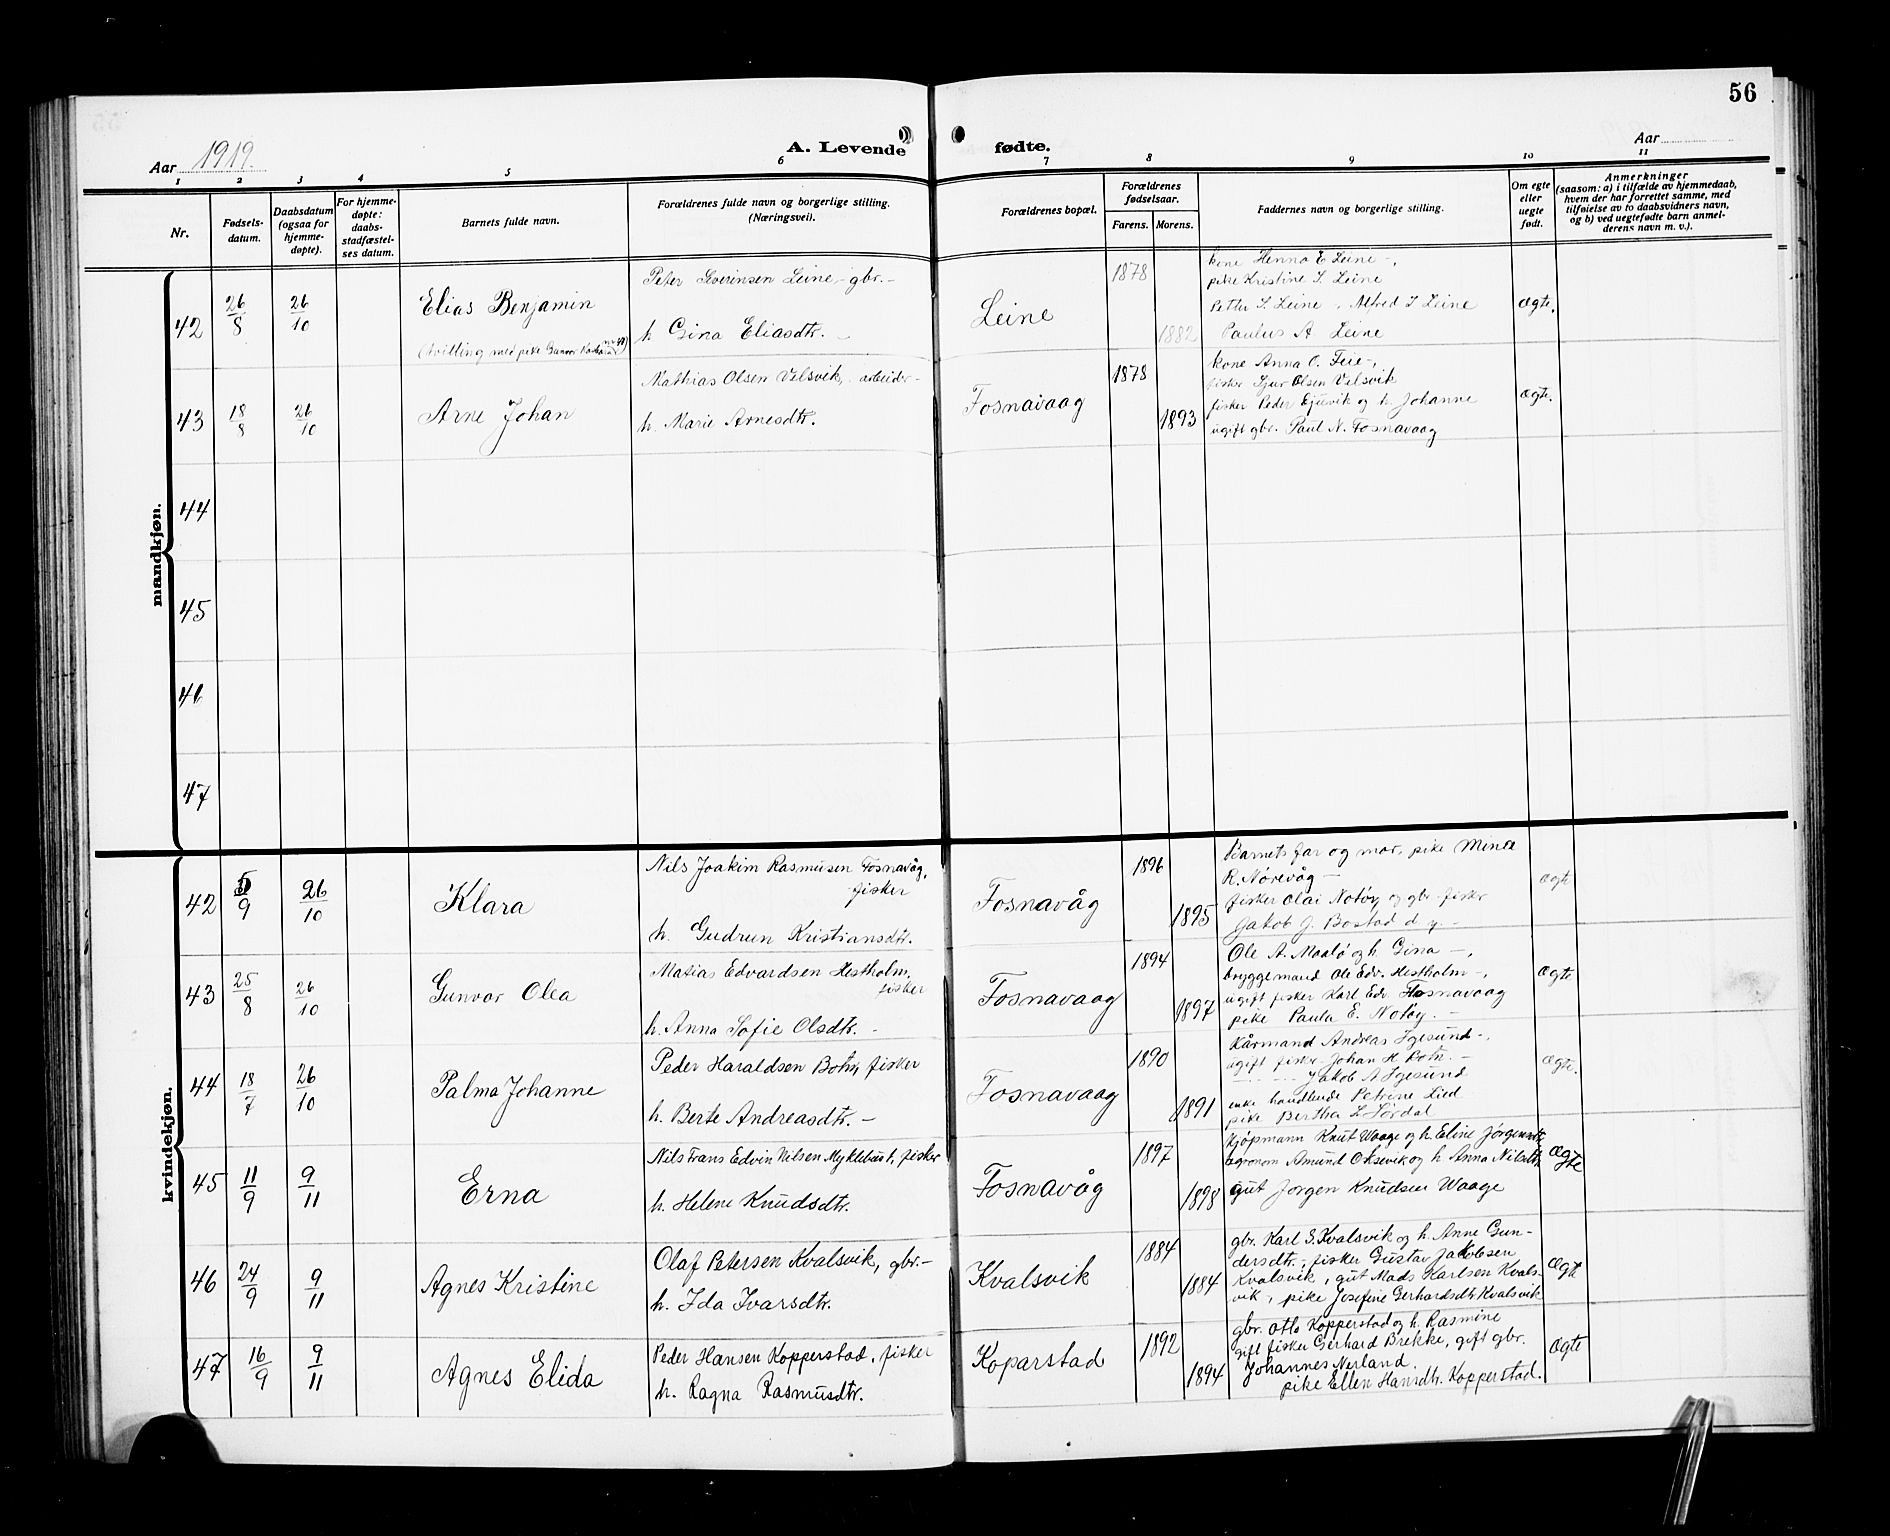 56
Aar 1919.
A. Levende
fødte.
Aar
1 2 3 4 5 6 7 8 9 10 11
Nr.
Fødsels-
datum.
Daabsdatum
(ogsaa for
hjemme-
døpte).
For hjemme-
døpte:
daabs-
stadfæstel-
ses datum.
Barnets fulde navn.
Forældrenes fulde navn og borgerlige stilling.
(Næringsvei).
Forældrenes bopæl.
Forældrenes
fødselsaar.
Farens. Morens.
Faddernes navn og borgerlige stilling.
Om egte
eller
uegte
født.
Anmerkninger
(saasom: a) i tilfælde av hjemmedaab,
hvem der har forrettet samme, med
tilføielse av to daabsvidners navn,
og b) ved uegtefødte barn anmel-
derens navn m. v.).
mandkjøn.
42
26/8
26/10
Elias Benjamin
(tvilling med pike Gunvor
Peter Severinsen Leine, gbr. -
h. Gina Eliasdtr. -
Leine
1878
1882
kone Henna E Leine -,
pike Kristine S. Leine
Petter S. Leine, Alfred S Leine
Paulus A Leine
Ægte.
43
18/8
26/10
Arne Johan
Mathias Olsen Velsvik, arbeider -
h. Marie Arnesdtr.
Fosnavaag
1878
1893
kone Anna O. Feie -,
fisker Sjur Olsen Velsvik
fisker Peder Ejusvik og h. Johanne
ugift gbr. Paul N. Fosnavaag
Ægte.
44
45
46
47
kvindekjøn.
42
5/9
26/10
Klara
Nils Joakim Rasmusen Fosnavåg,
fisker
h. Gudrun Kristiansdtr.
Fosnavåg
1896
1895
Barnets far og mor, pike Mina
R. Nørevåg -
fisker Olai Notøy og gbr. fisker
Jakob J. Bostad d.y. -
Ægte
43
25/8
26/10
Gunvor Olea
Matias Edvardsen Hestholm,
fisker
h. Anna Sofie Olsdtr. -
Fosnavaag
1894
1897
Ole A. Moalø og h. Gina -,
bryggemand Ole Edv. Hestholm -,
ugift fisker Karl Edv. Fosnavaag
pike Paula E. Notøy. -
Ægte
44
18/7
26/10
Palma Johanne
Peder Haraldsen Botn, fisker
h. Berte Andreasdtr. -
Fosnavaag
1890
1891
Kårmand Andreas Igesund -,
ugift fisker Johan H Botn. -
Jakob A Igesund
enke handlende Petrine Lied
pike Bertha L Sørdal
Ægte.
45
11/9
9/11
Erna
Nils Frans Edvin Nilsen Myklebust, fisker
h. Helene Knudsdtr.
Fosnavåg
1897
1898
Kjøpmann Knut Waage og h. Eline Jørgensdtr,
agronom Amund Oksevik og h. Anna Nilsdtr,
gut Jørgen Knudsen Waage
Ægte
46
24/9
9/11
Agnes Kristine
Olaf Petersen Kvalsvik, gbr. -
h. Ida Ivarsdtr.
Kvalsvik
1884
1884
gbr. Karl S. Kvalsvik og h. Anne Gun-
dersdtr., fisker Gustav Jakobsen
Kvalsvik, gut Mads Karlsen Kvals-
vik, pike Josefine Gerhardsdtr. Kvalsvik
Ægte
47
16/9
9/11
Agnes Elida
Peder Hansen Kopperstad, fisker
h. Ragna Rasmusdtr.
Koparstad
1892
1894
gbr. Otto Kopperstad og h. Rasmine
gift fisker Gerhard Brekke, gift gbr.
Johannes Nerland.
pike Ellen Hansdtr. Kopperstad.
Ægte